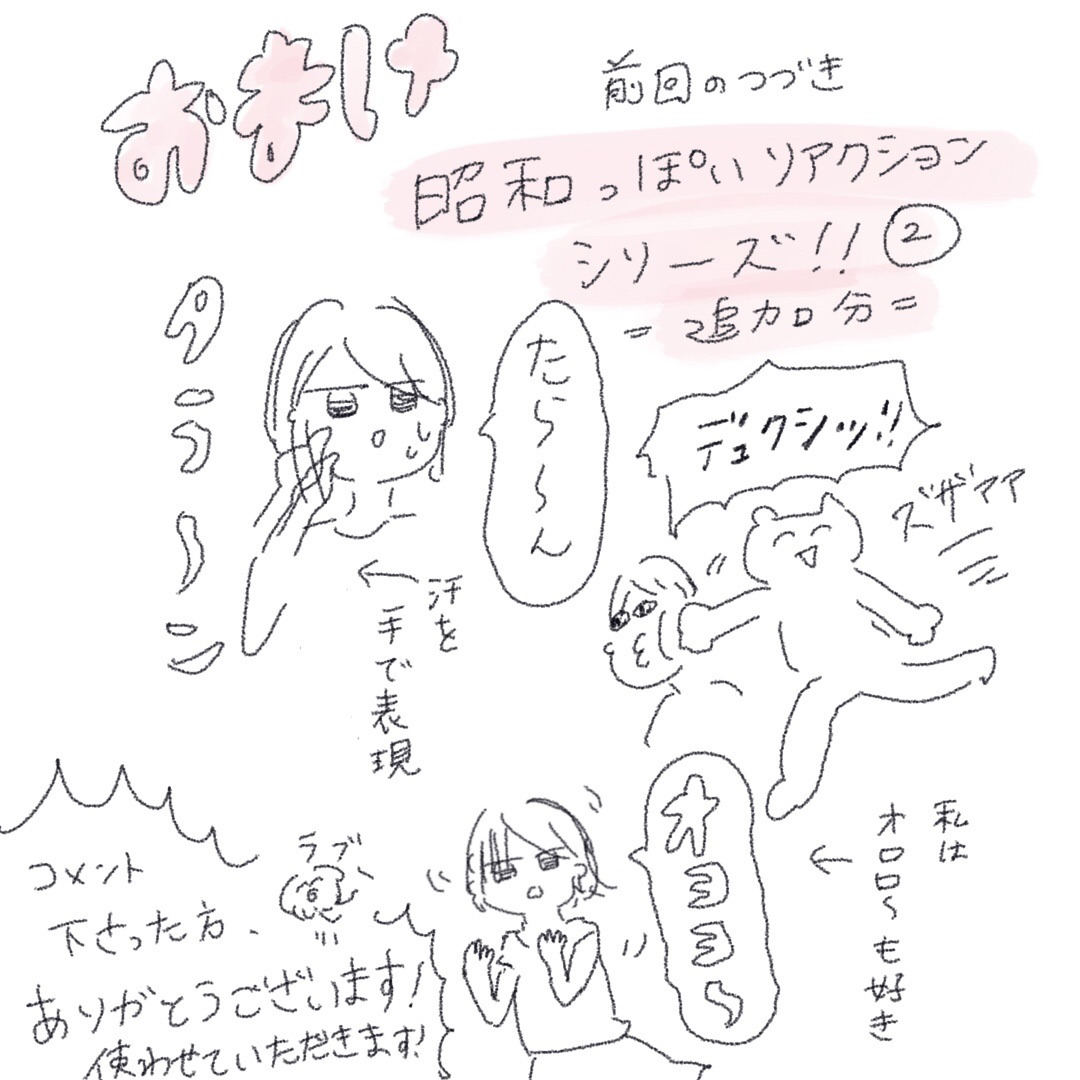 おまけ
前回のつづき
昭和っぽいリアクション
シリーズ!!②
=追加分=
タラ〜ン
たら〜〜ん
汗を
手で表現
デュクシッ!!
ズザアア
オヨヨ〜
私は
オロロ〜も好き
コメント
下さった方、
ラブ
ありがとうございます!
使わせていただきます!